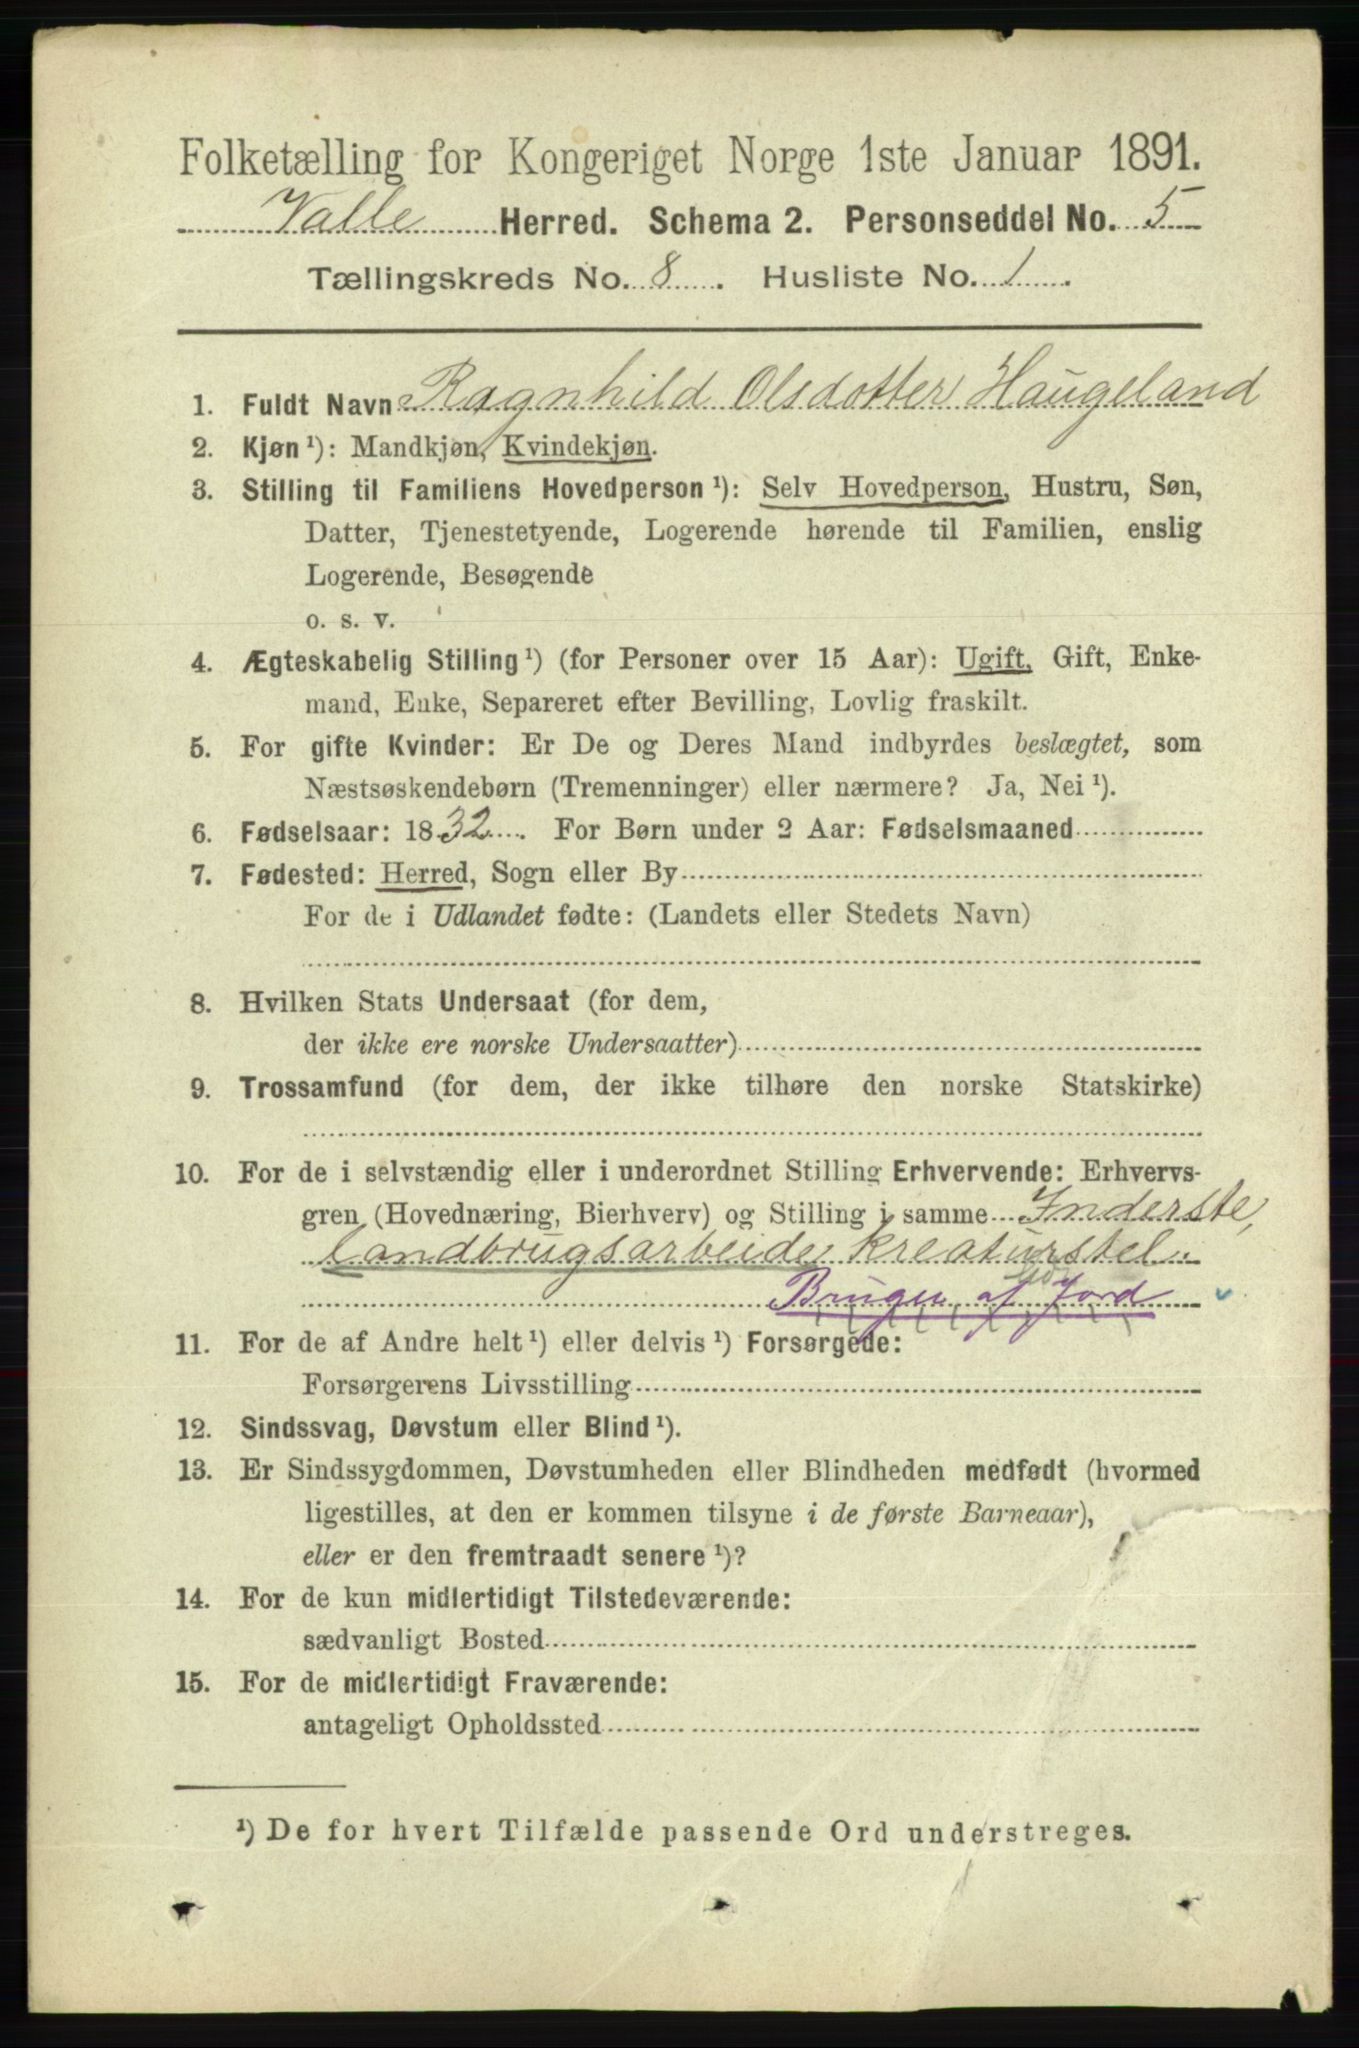 Folketælling for Kongeriget Norge 1ste Januar 1891.
Valle Herred. Schema 2. Personseddel No. 5
Tællingskreds No. 8. Husliste No. 1.
1. Fuldt Navn Ragnhild Olsdotter Haugeland
2. Kjøn ¹): Mandkjøn, Kvindekjøn.
3. Stilling til Familiens Hovedperson ¹): Selv Hovedperson, Hustru, Søn,
Datter, Tjenestetyende, Logerende hørende til Familien, enslig
Logerende, Besøgende
o. s. v.
4. Ægteskabelig Stilling ¹) (for Personer over 15 Aar): Ugift, Gift, Enke-
mand, Enke, Separeret efter Bevilling, Lovlig fraskilt.
5. For gifte Kvinder: Er De og Deres Mand indbyrdes beslægtet, som
Næstsøskendebørn (Tremenninger) eller nærmere? Ja, Nei ¹).
6. Fødselsaar: 1832. For Børn under 2 Aar: Fødselsmaaned
7. Fødested: Herred, Sogn eller By
For de i Udlandet fødte: (Landets eller Stedets Navn)
8. Hvilken Stats Undersaat (for dem,
der ikke ere norske Undersaatter)
9. Trossamfund (for dem, der ikke tilhøre den norske Statskirke)
10. For de i selvstændig eller i underordnet Stilling Erhvervende: Erhvervs-
gren (Hovednæring, Bierhverv) og Stilling i samme Inderste,
landbrugsarbeide kreaturstel.
Bruger af Jord
11. For de af Andre helt ¹) eller delvis ¹) Forsørgede:
Forsørgerens Livsstilling
12. Sindssvag, Døvstum eller Blind ¹).
13. Er Sindssygdommen, Døvstumheden eller Blindheden medfødt (hvormed
ligestilles, at den er kommen tilsyne i de første Barneaar),
eller er den fremtraadt senere ¹)?
14. For de kun midlertidigt Tilstedeværende:
sædvanligt Bosted
15. For de midlertidigt Fraværende:
antageligt Opholdssted
¹) De for hvert Tilfælde passende Ord understreges.